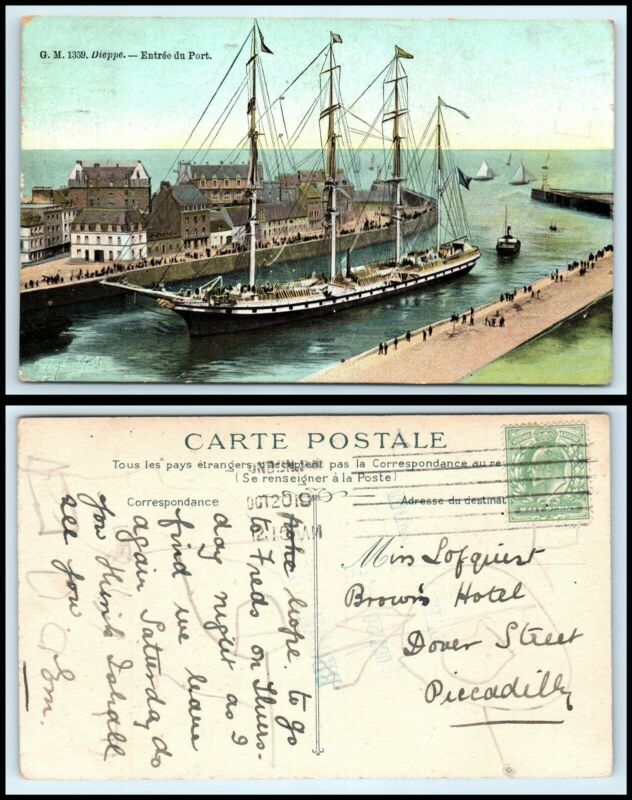 G. M. 1359. Dieppe. — Entrée du Port.
CARTE POSTALE
Tous les pays étrangers n'acceptent pas la Correspondance au re
(Se renseigner à la Poste)
Correspondance
Adresse du destinat
OCT 20
12.15 AM
hope to go
to Freds on Thurs-
day night as I
find we leave
again Saturday do
you think I shall
see you.
Em.
Miss Lofquist
Brown's Hotel
Dover Street
Piccadilly